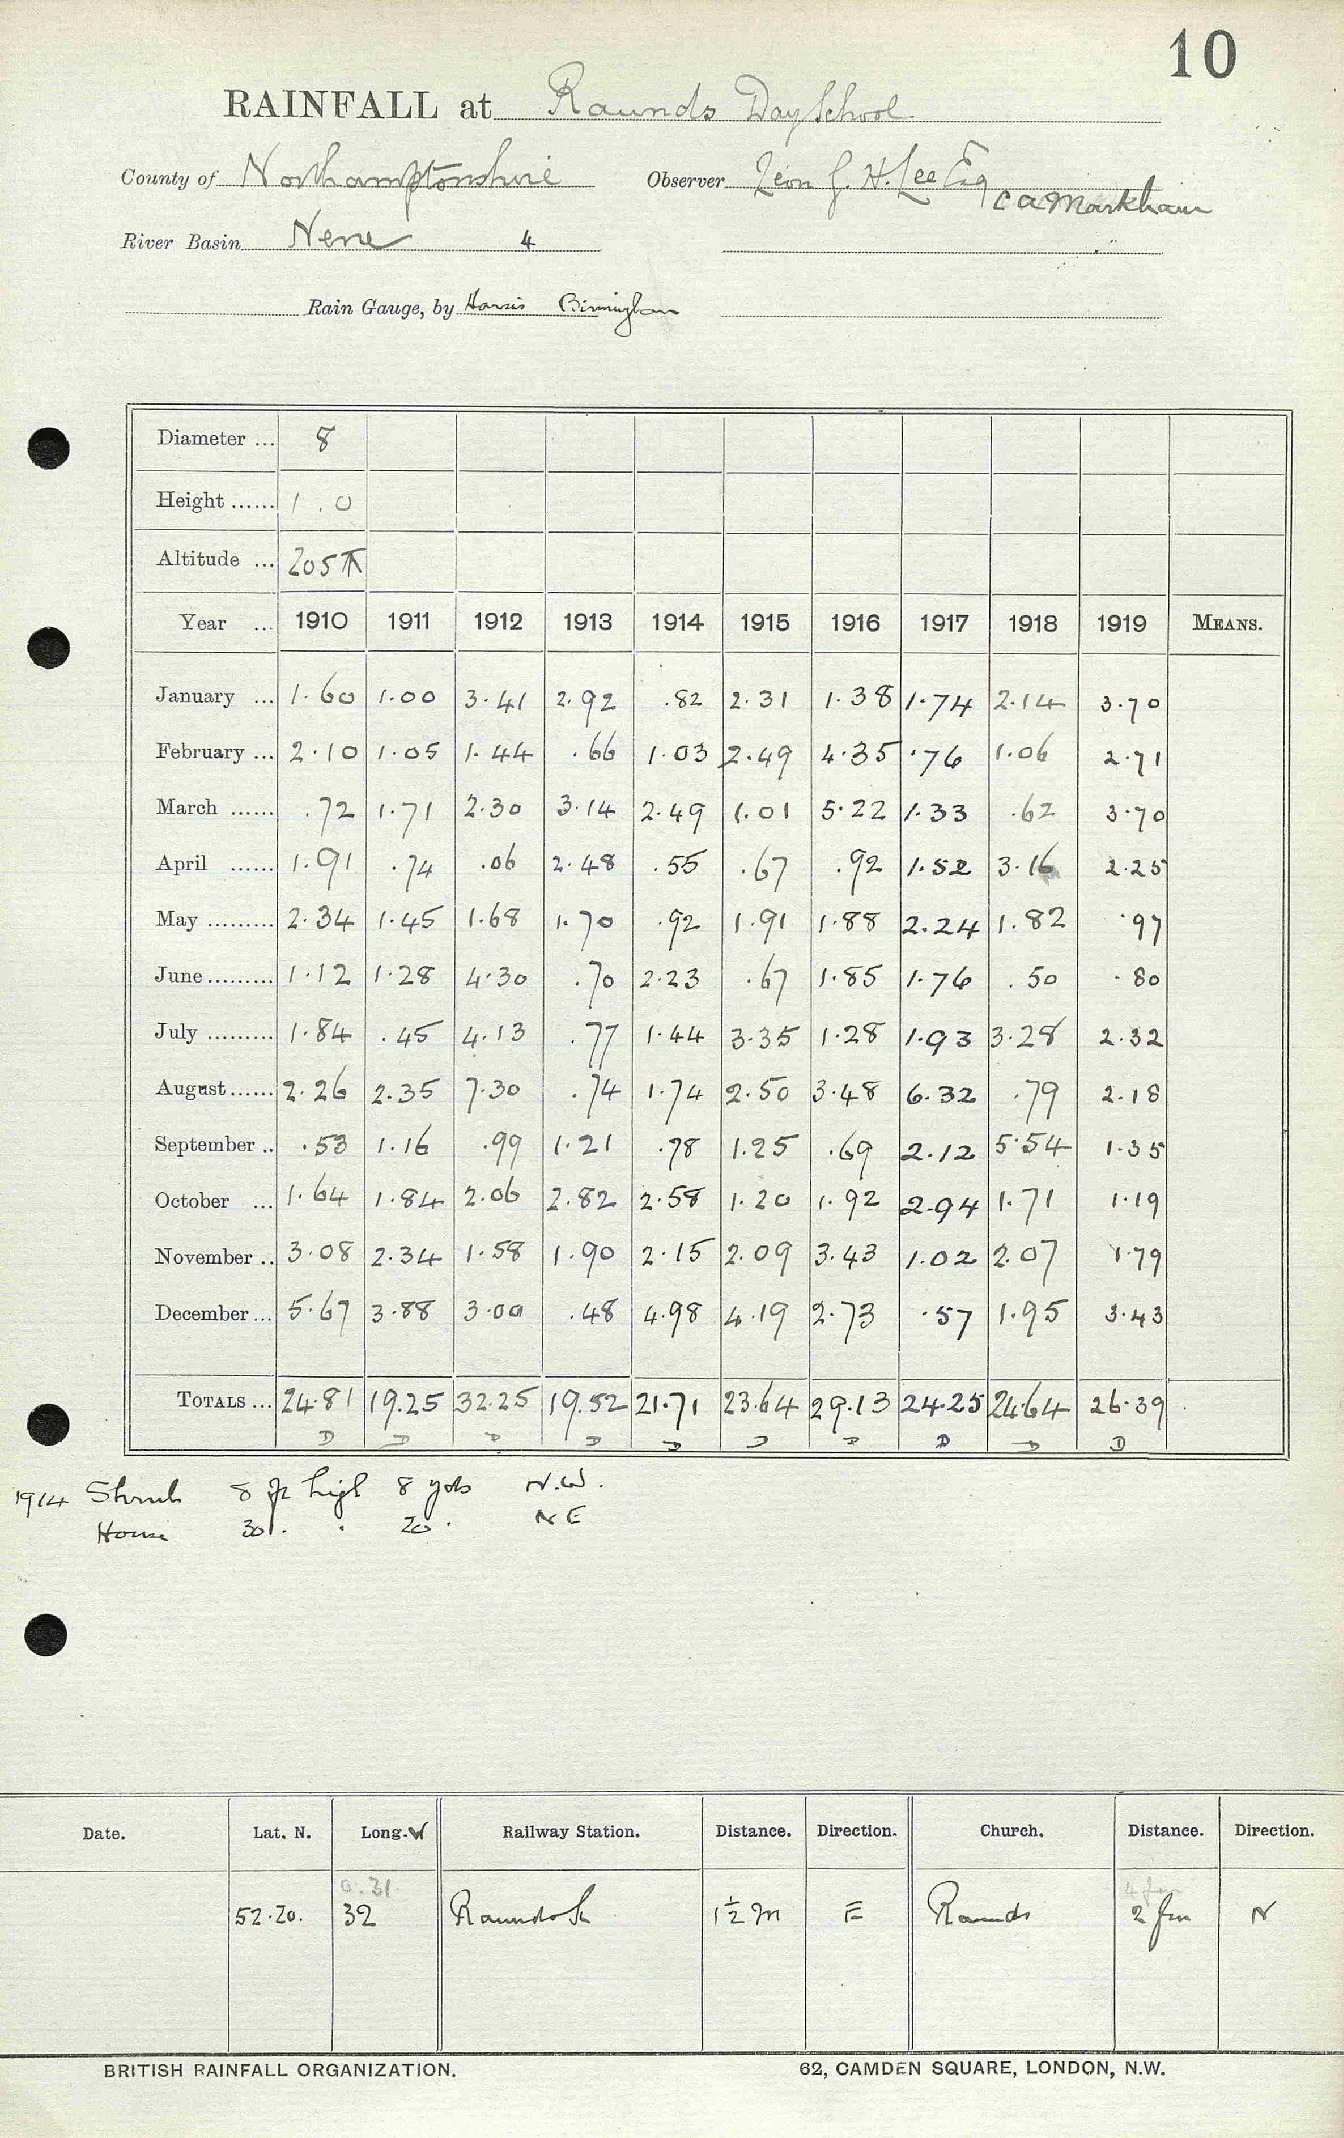 10
RAINFALL at Raunds Day School
County of Northamptonshire Observer Leon G. H. Lee Esq
C A Markham
River Basin Nene 4
Rain Gauge, by Harris Birmingham
Diameter ... 8
Height ...... 1.0
Altitude ... 205 ft
Year ... 1910 1911 1912 1913 1914 1915 1916 1917 1918 1919 MEANS.
January ... 1.60 1.00 3.41 2.92 .82 2.31 1.38 1.74 2.14 3.70
February ... 2.10 1.05 1.44 .66 1.03 2.49 4.35 .76 1.06 2.71
March ...... .72 1.71 2.30 3.14 2.49 1.01 5.22 1.33 .62 3.70
April ...... 1.91 .74 .06 2.48 .55 .67 .92 1.52 3.16 2.25
May ......... 2.34 1.45 1.68 1.70 .92 1.91 1.88 2.24 1.82 .97
June ......... 1.12 1.28 4.30 .70 2.23 .67 1.85 1.76 .50 .80
July ......... 1.84 .45 4.13 .77 1.44 3.35 1.28 1.93 3.28 2.32
August ...... 2.26 2.35 7.30 .74 1.74 2.50 3.48 6.32 .79 2.18
September .. .53 1.16 .99 1.21 .78 1.25 .69 2.12 5.54 1.35
October ... 1.64 1.84 2.06 2.82 2.58 1.20 1.92 2.94 1.71 1.19
November .. 3.08 2.34 1.58 1.90 2.15 2.09 3.43 1.02 2.07 1.79
December ... 5.67 3.88 3.00 .48 4.98 4.19 2.73 .57 1.95 3.43
TOTALS ... 24.81 19.25 32.25 19.52 21.71 23.64 29.13 24.25 24.64 26.39
D D D D D D D D D D
1914 Shrub 8 ft high 8 yds N.W.
House 30 . . 20 . NE
Date. Lat. N. Long. W Railway Station. Distance. Direction. Church. Distance. Direction.
0.31 4 fur
52.20. 32 Raunds St 1½ m E Raunds 2 fur N
BRITISH RAINFALL ORGANIZATION. 62, CAMDEN SQUARE, LONDON, N.W.